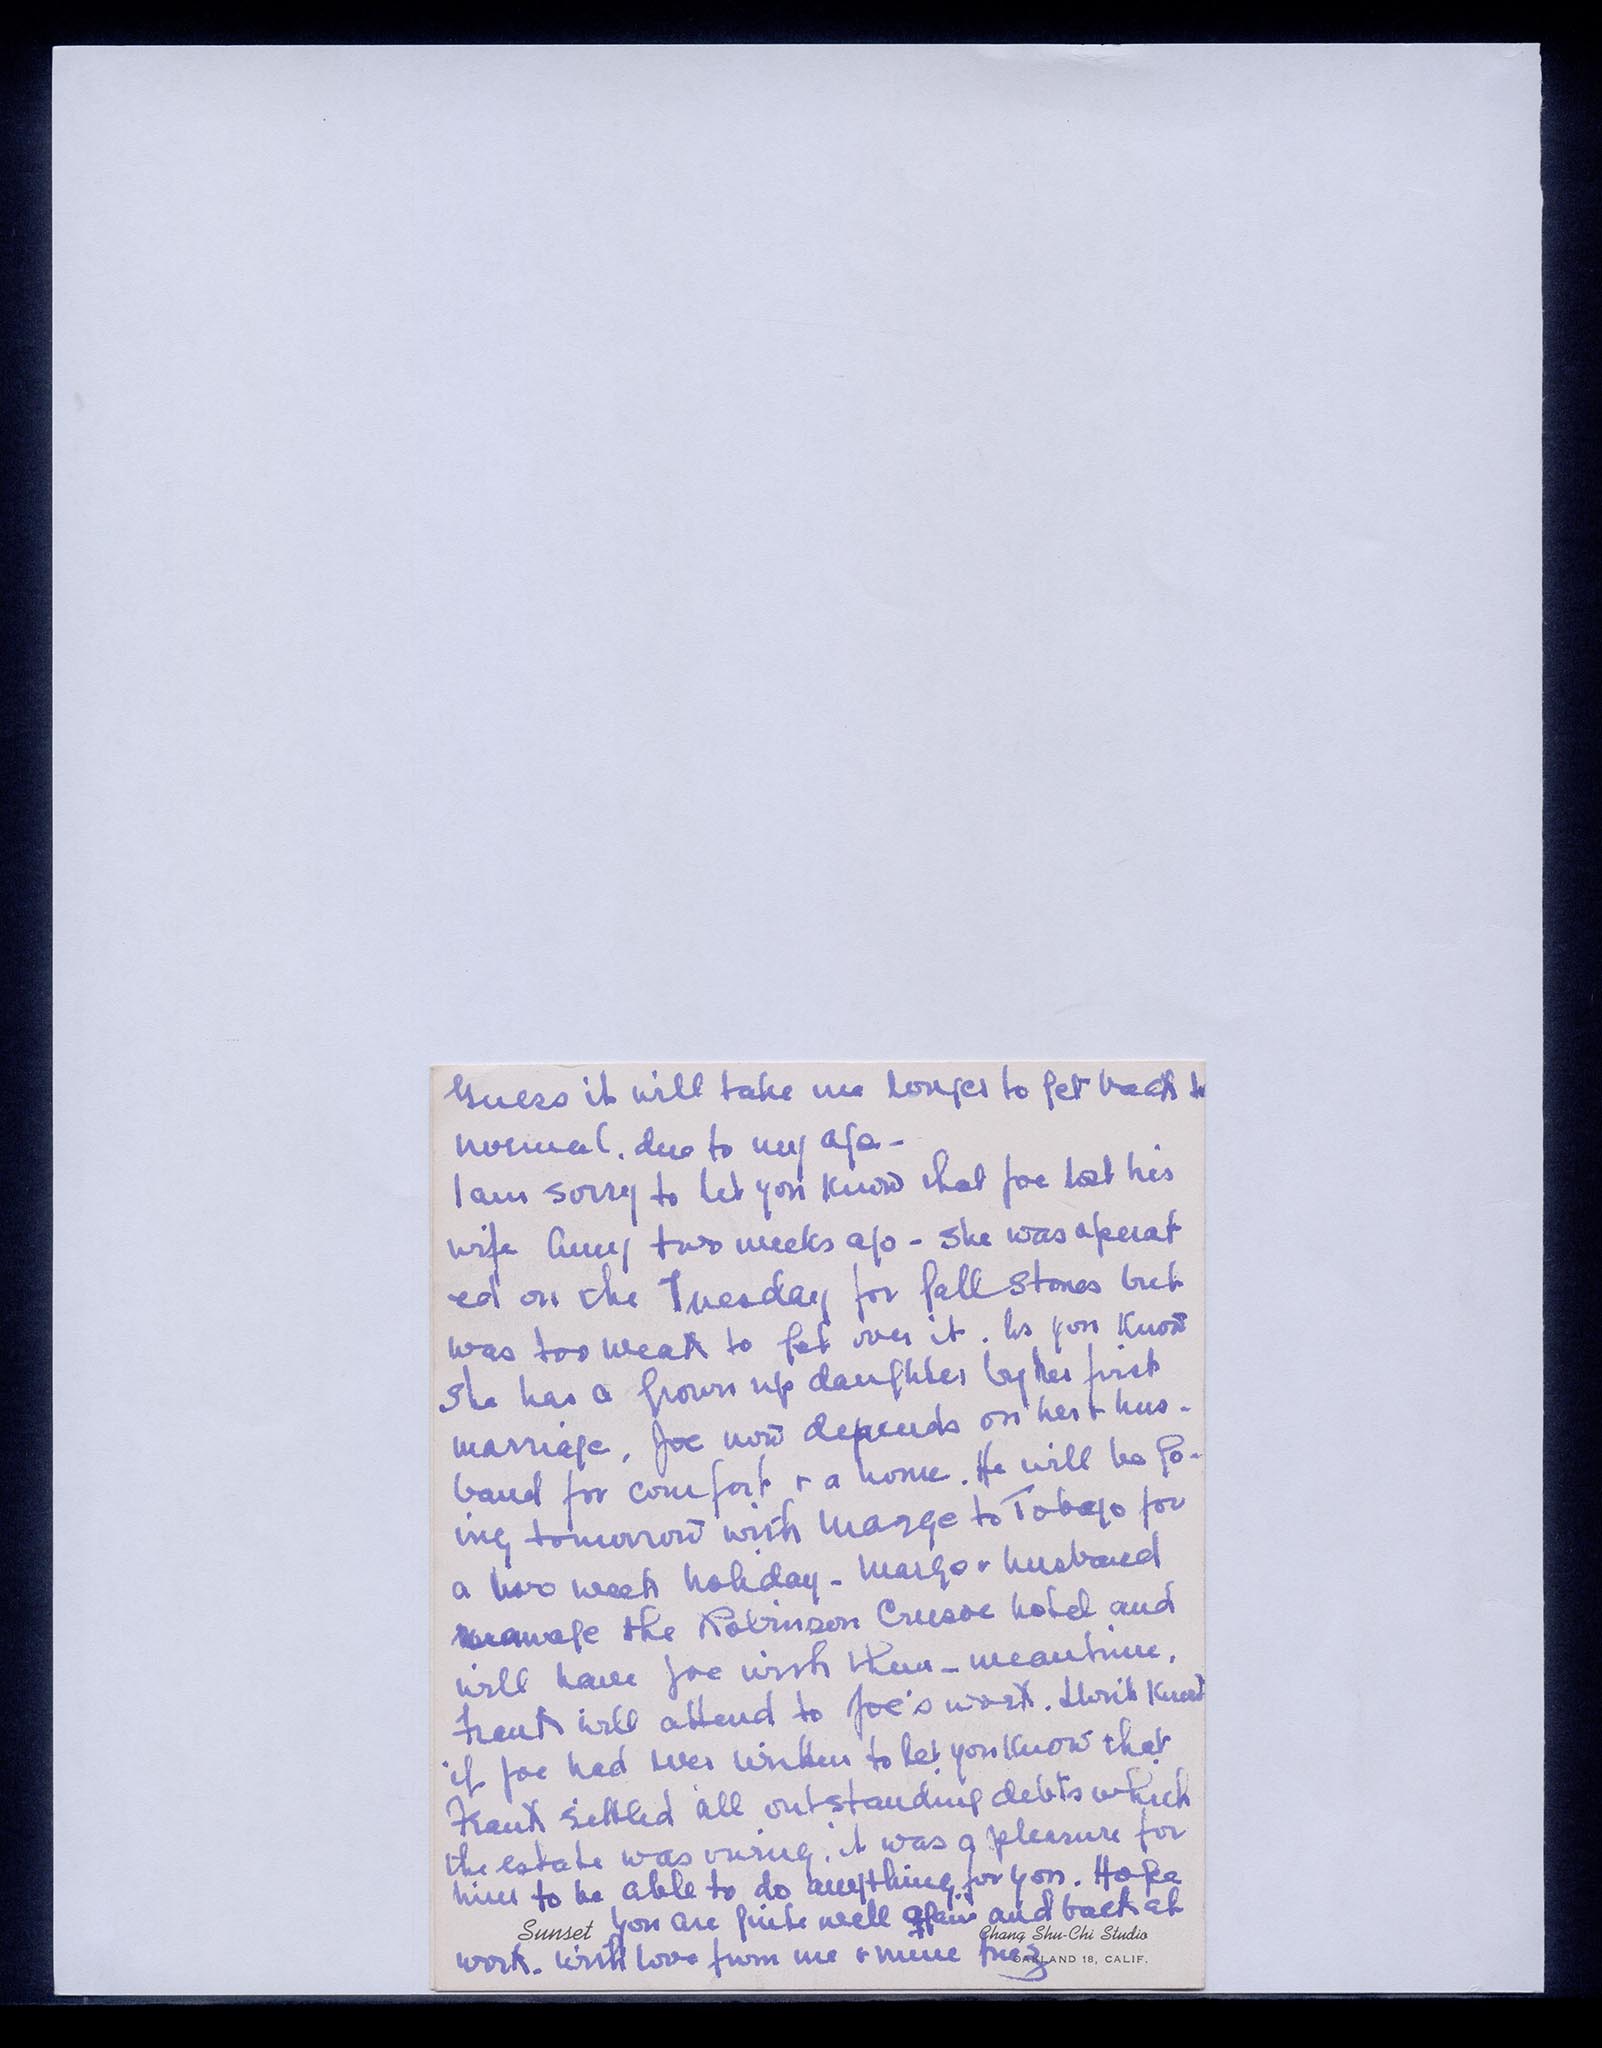 Guess it will take me longer to get back to
normal. due to my age -
I am sorry to let you know that Joe lost his
wife Amy two weeks ago - She was operat
ed on the Tuesday for gall stones but
was too weak to get over it. As you know
She has a grown up daughter by her first
marriage, Joe now depends on her + hus-
band for comfort + a home. He will be go-
ing tomorrow with Marge to Tobago for
a two week holiday - Margo + husband
manage the Robinson Crusoe hotel and
will have Joe with them - meantime,
Frank will attend to Joe's work. Don't know
if Joe had ever written to let you know that
Frank settled all outstanding debts which
the estate was owing, it was a pleasure for
him to be able to do anything for you. Hope
you are quite well again and back at
work. With love from me + mine Inez
Sunset
Chang Shu-Chi Studio
OAKLAND 18, CALIF.